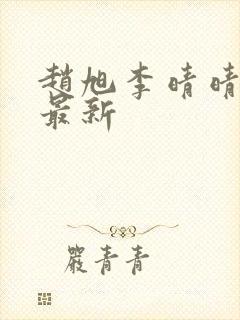 趙旭李晴晴
最新
嚴青青